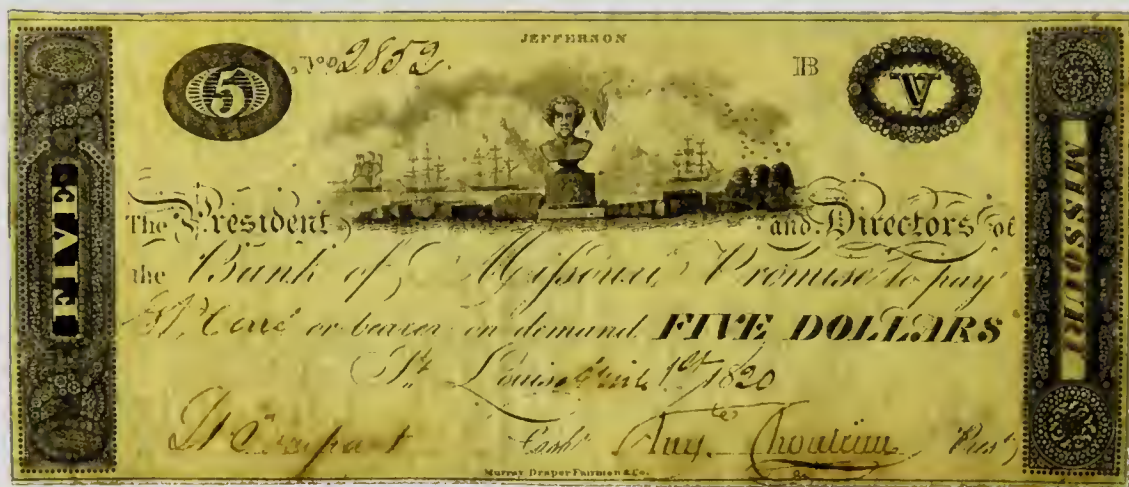 JEFFERSON
5 No 2852. B V
FIVE
The President and Directors of
the Bank of Missouri Promise to pay
or bearer on demand FIVE DOLLARS
St. Louis 1st 1820
Cashr. Augte Chouteau Prest
Murray Draper Fairman & Co.
MISSOURI